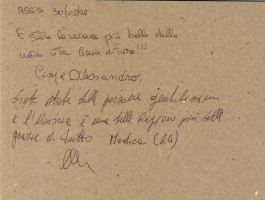 ASSISI 30/05/08
È stata la vacanza più bella della
nostra vita Grazie di tutto!!!
Giusy e Alessandro.
Siete state delle persone gentilissime
e l'Umbria è una delle regioni più belle
grazie di tutto Modica (RG)